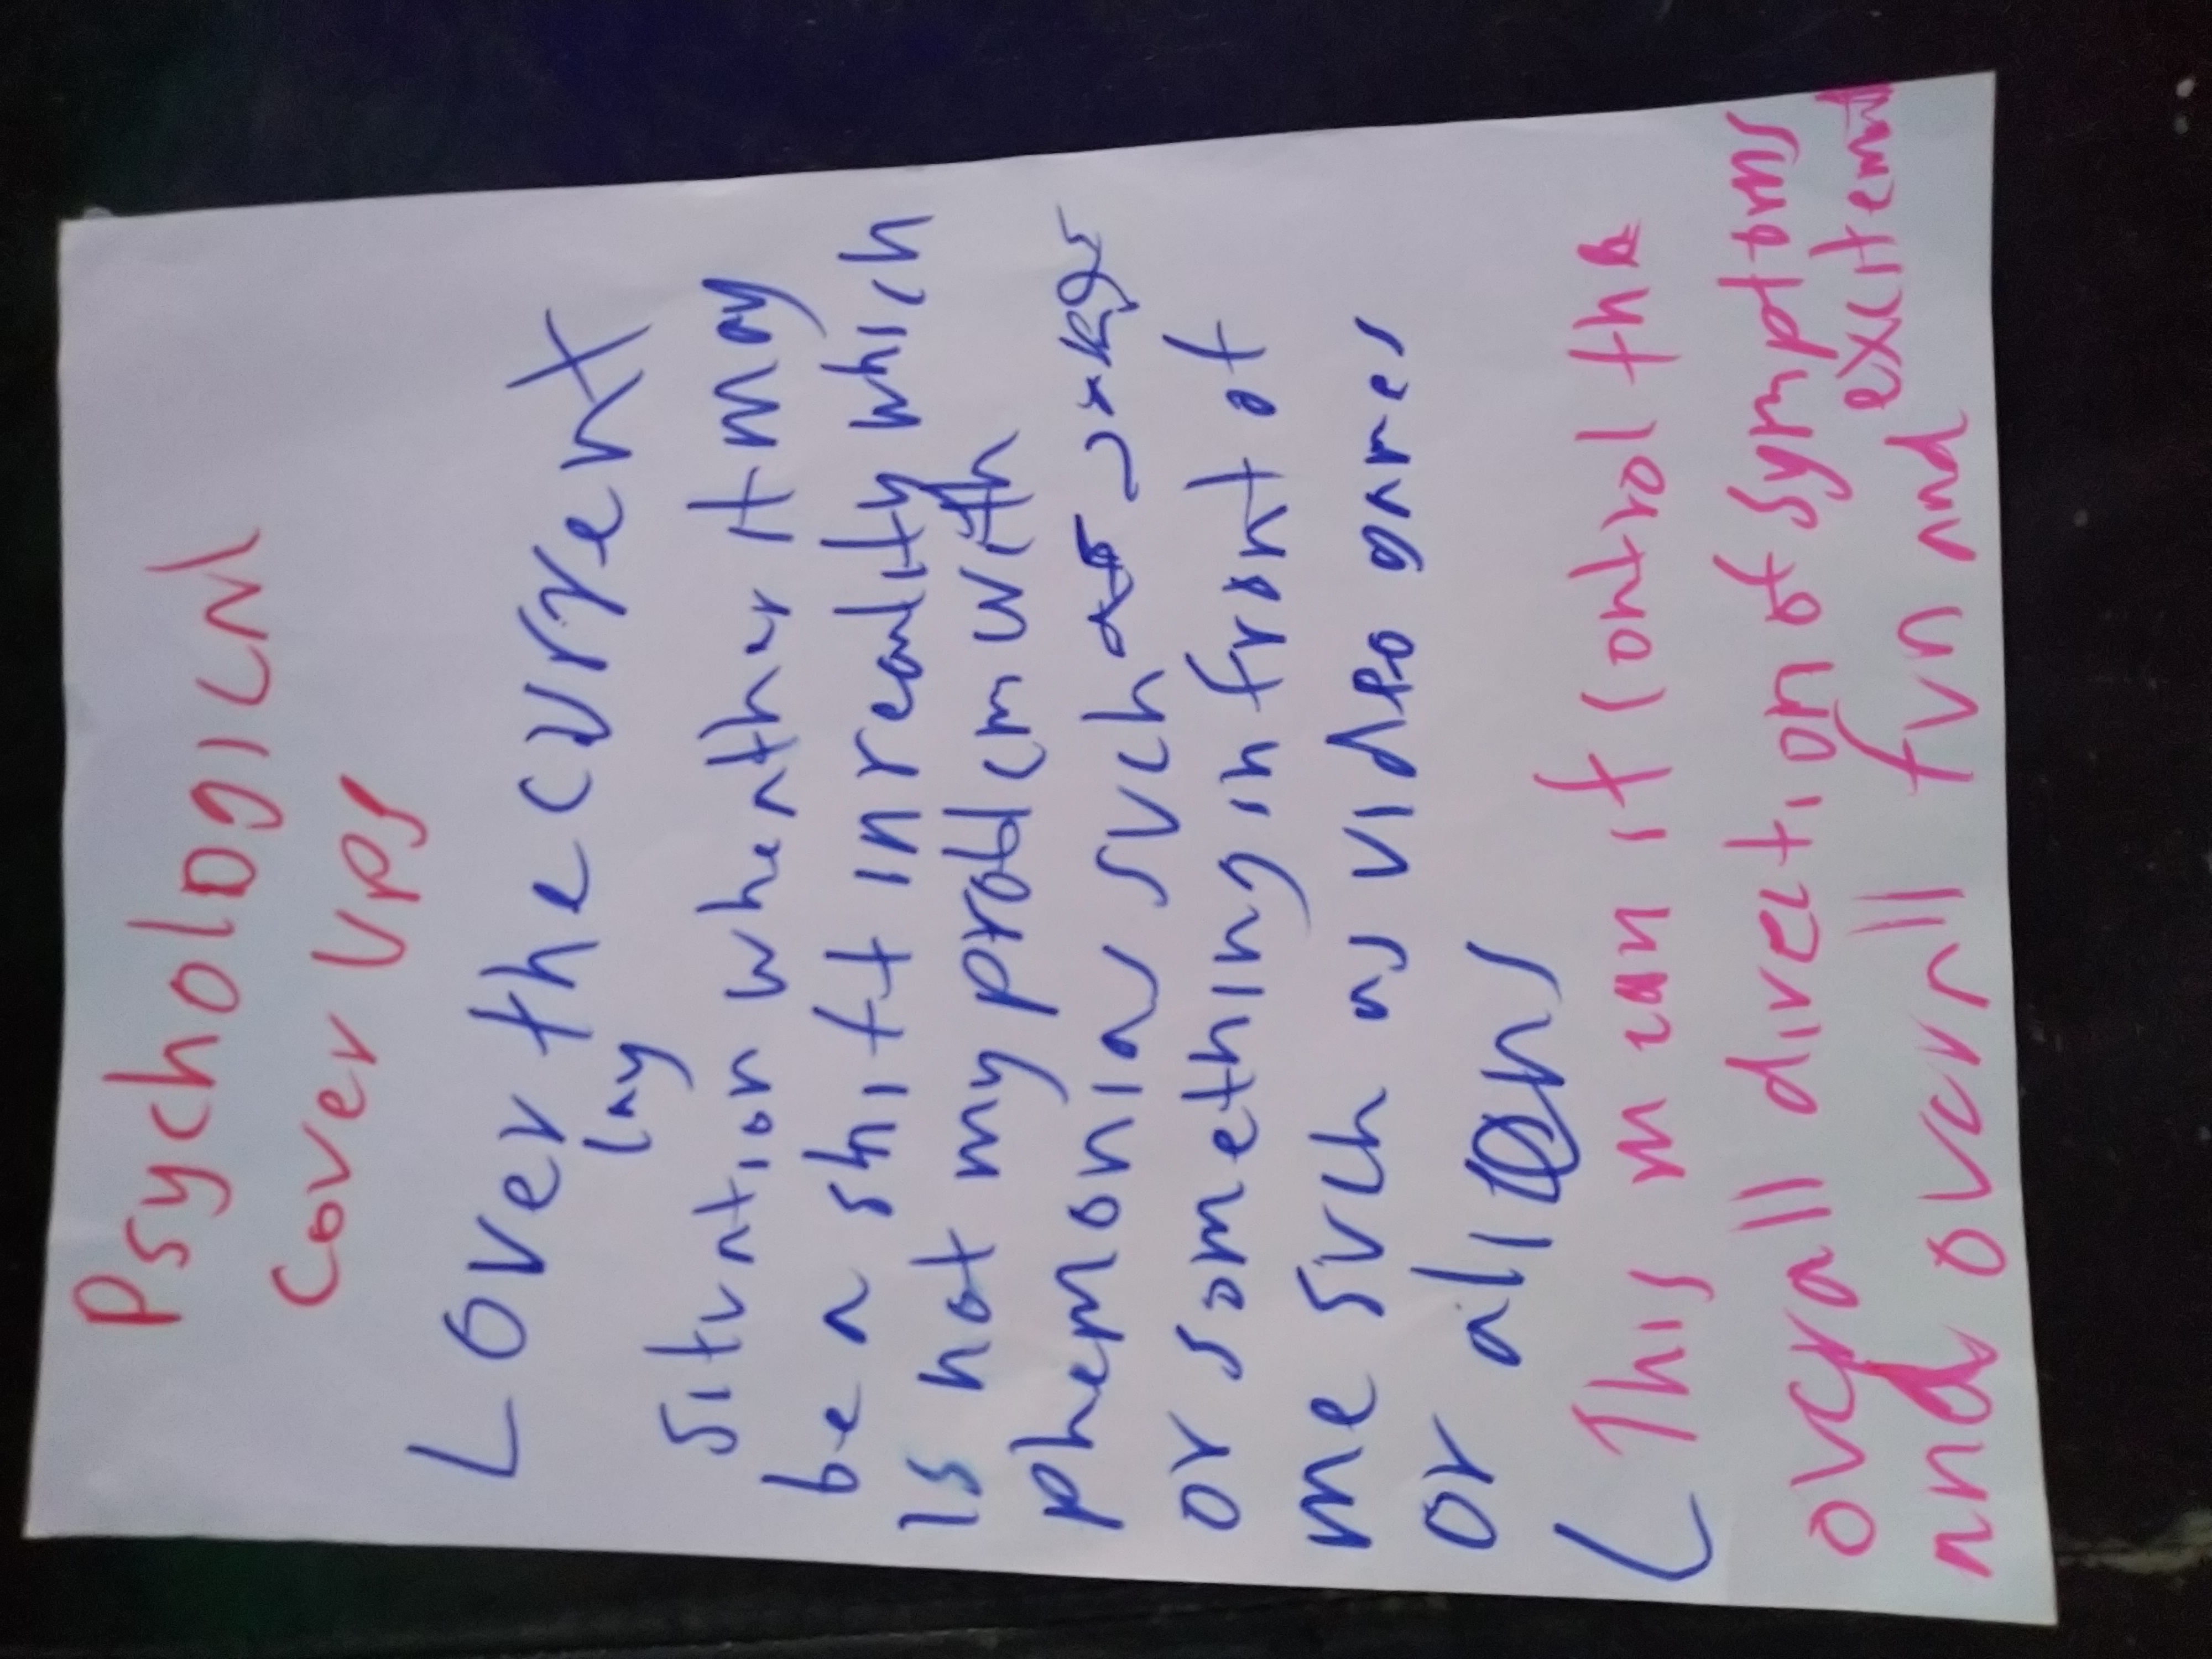 Psychological
Cover Ups
Lover the current
lay
situation whether it may
be a shift in reality which
is not my problem with
phemonia such as
or something in front of
me such as video games
or
This man if control the
overall direction of symptoms
and overall fun and excitem